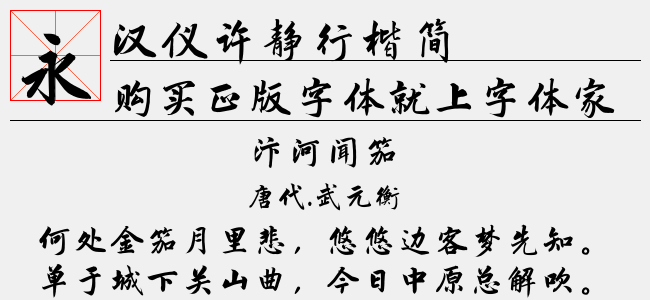 永
汉仪许静行楷简
购买正版字体就上字体家
汴河闻笳
唐代.武元衡
何处金笳月里悲，悠悠边客梦先知。
单于城下关山曲，今日中原总解吹。